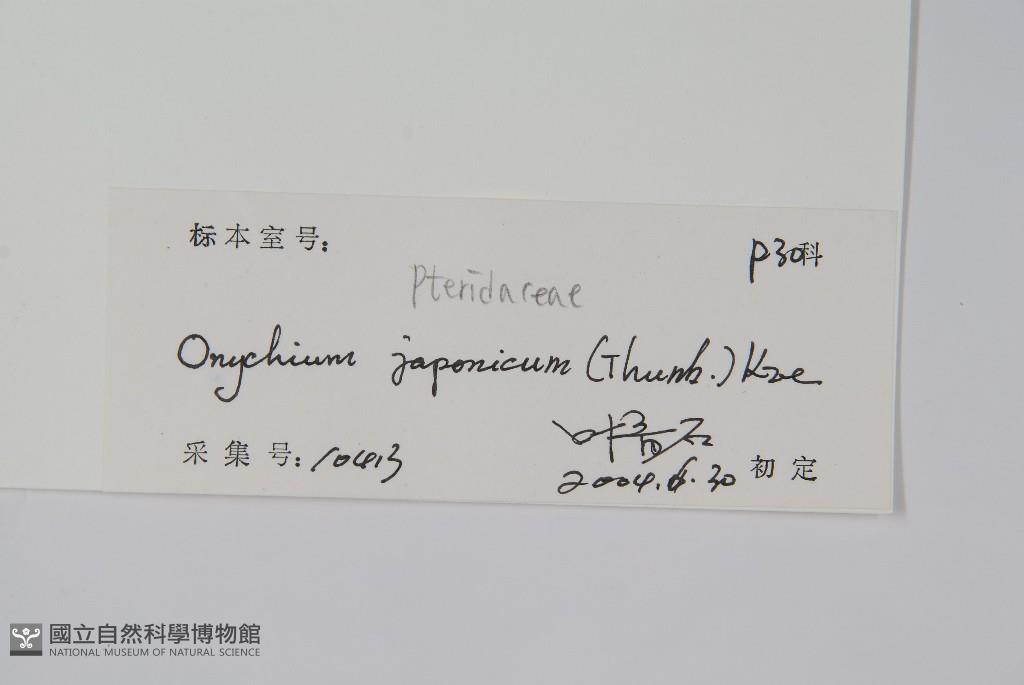 标本室号:
P30科
Pteridaceae
Onychium japonicum (Thunb.) Kze
采集号: 10413
2004.6.30 初定
國立自然科學博物館
NATIONAL MUSEUM OF NATURAL SCIENCE